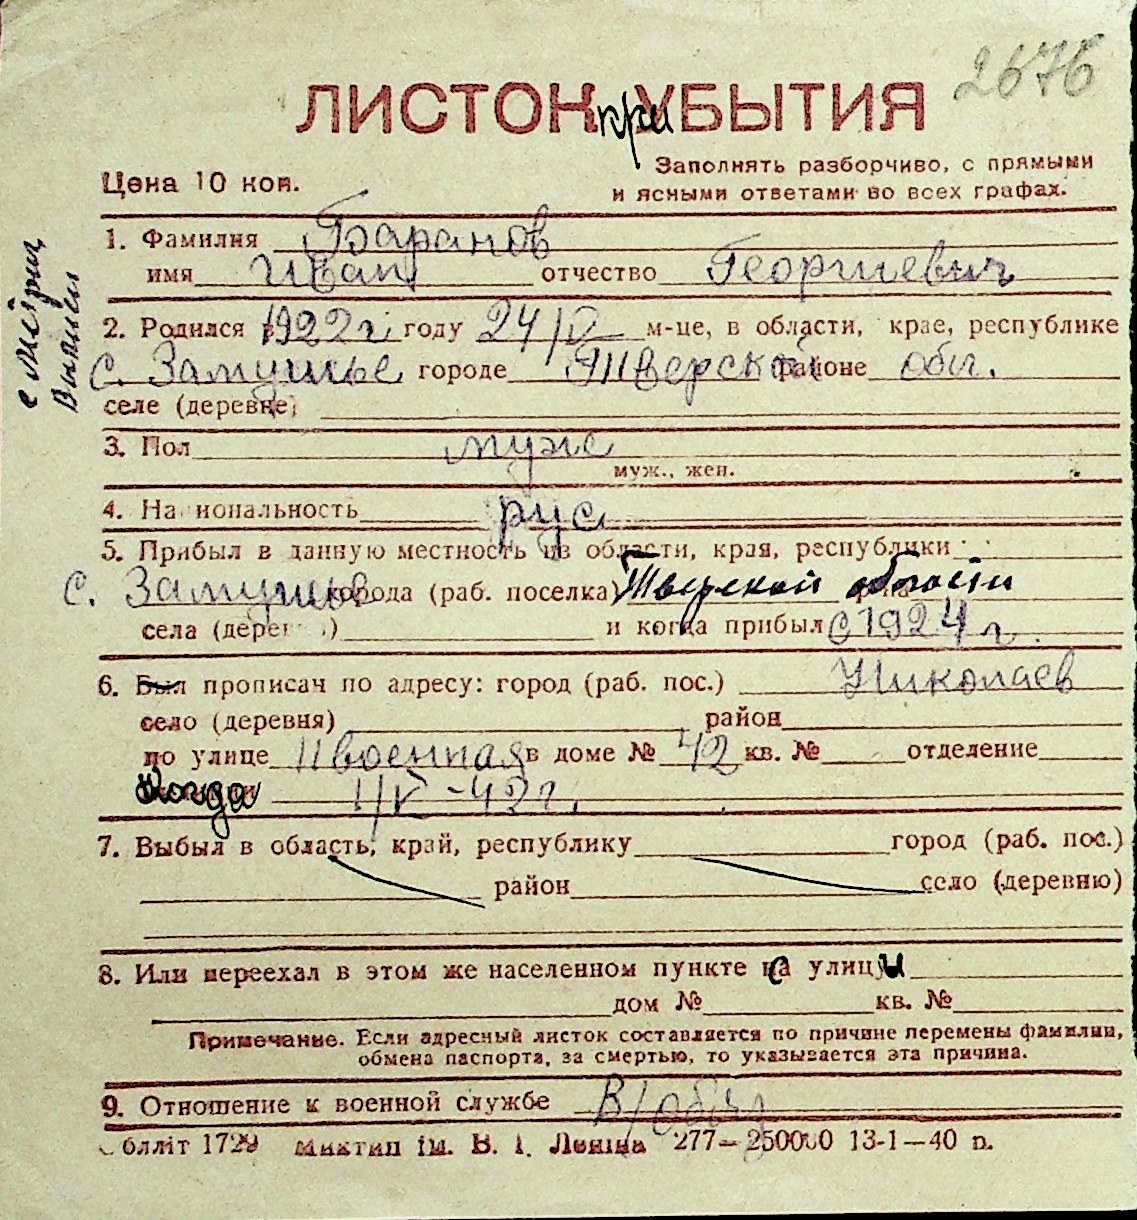 2676
ЛИСТОК при УБЫТИЯ
Цена 10 коп.
Заполнять разборчиво, с прямыми
и ясными ответами во всех графах.
1. Фамилия Баранов
имя Иван отчество Георгиевич
2. Родился в 1922 г году 24/V м-це, в области, крае, республике
с. Замушье городе Тверской районе обл.
селе (деревне)
3. Пол муж
муж., жен.
4. Национальность рус
5. Прибыл в данную местность из области, края, республики
с. Замушье города (раб. поселка) Тверской области
села (деревни) и когда прибыл с 1924 г.
6. Был прописан по адресу: город (раб. пос.) Николаев
село (деревня) район
по улице II военная в доме № 42 кв. № отделение
Когда 1/V-42 г.
7. Выбыл в область, край, республику город (раб. пос.)
район село (деревню)
8. Или переехал в этом же населенном пункте с улицы
дом № кв. №
Примечание. Если адресный листок составляется по причине перемены фамилии,
обмена паспорта, за смертью, то указывается эта причина.
9. Отношение к военной службе В/обяз
Обллiт 1729 Миктип iм. В. I. Ленiна 277—250000 13-1—40 п.